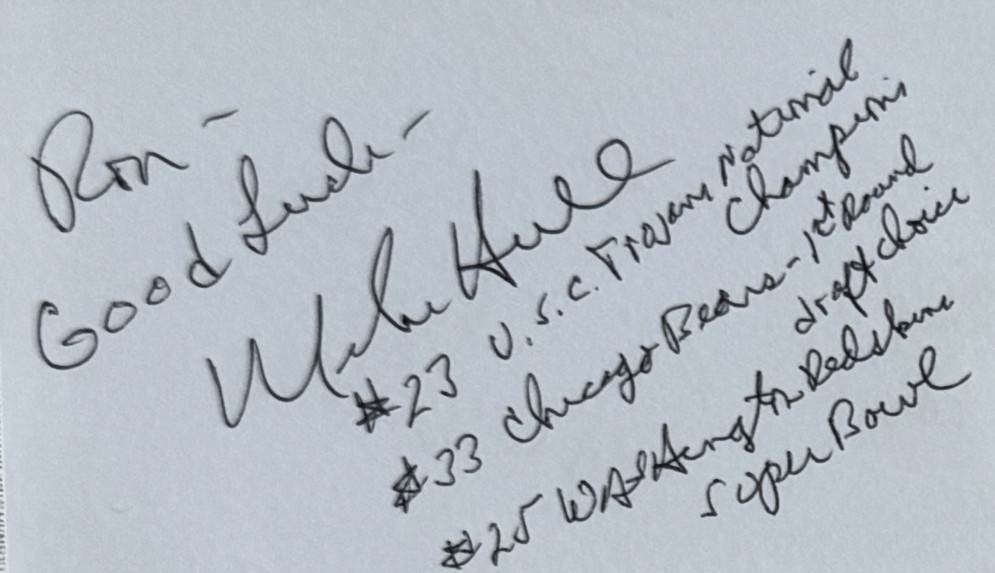 Ron -
Good Luck -
Mike Hull
#23 U.S.C. Trojans National
Champions
#33 Chicago Bears - 1st Round
draft choice
#25 WAsHington Redskins
Super Bowl